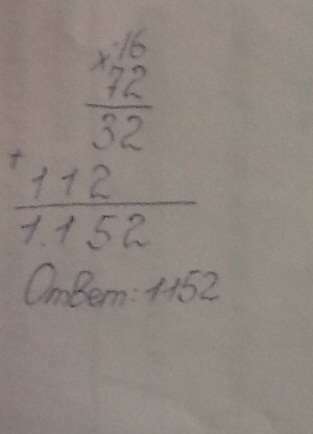 ×16
72
32
+
112
1.152
Ответ: 1152